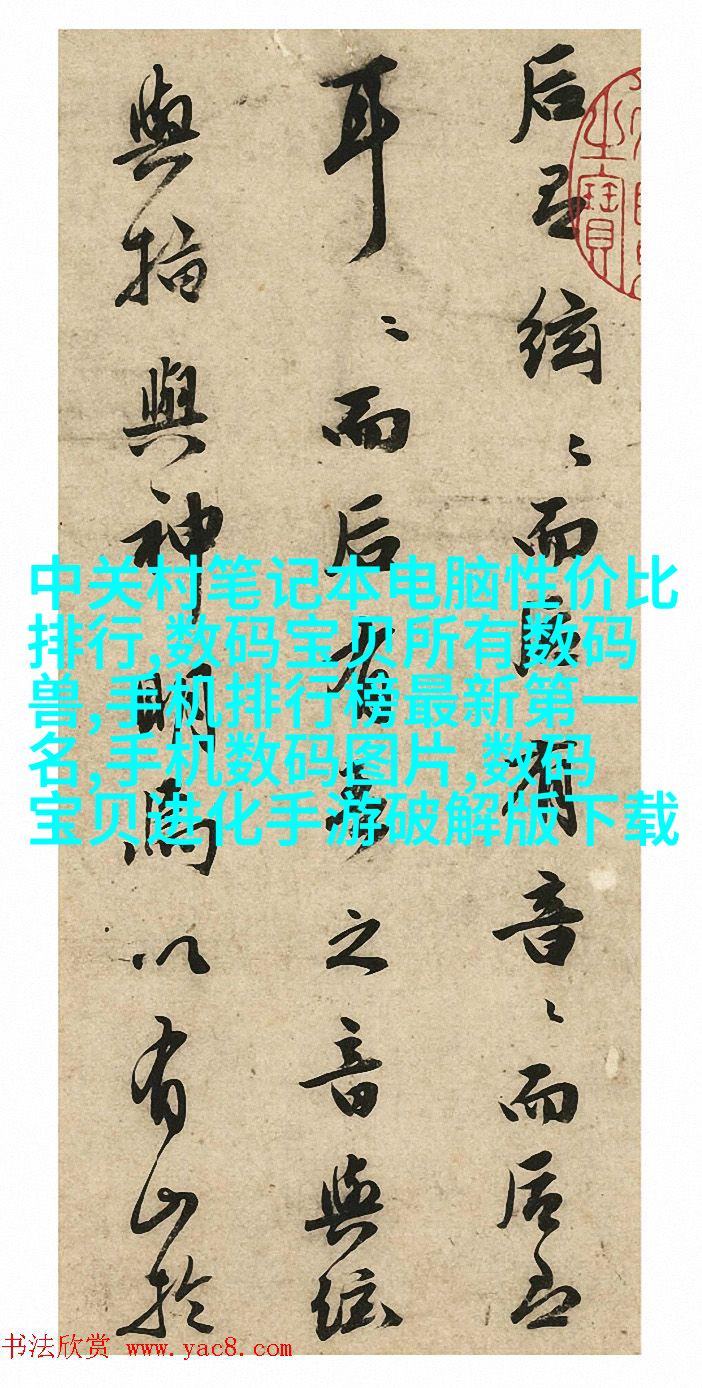 后絃〻而后有音〻而后
耳〻而后之音與絃
與指與神明為以有山於
之寶
中关村笔记本电脑性价比
排行,数码宝贝所有数码
兽,手机排行榜最新第一
名,手机数码图片,数码
宝贝进化手游破解版下载
书法欣赏 www.yac8.com